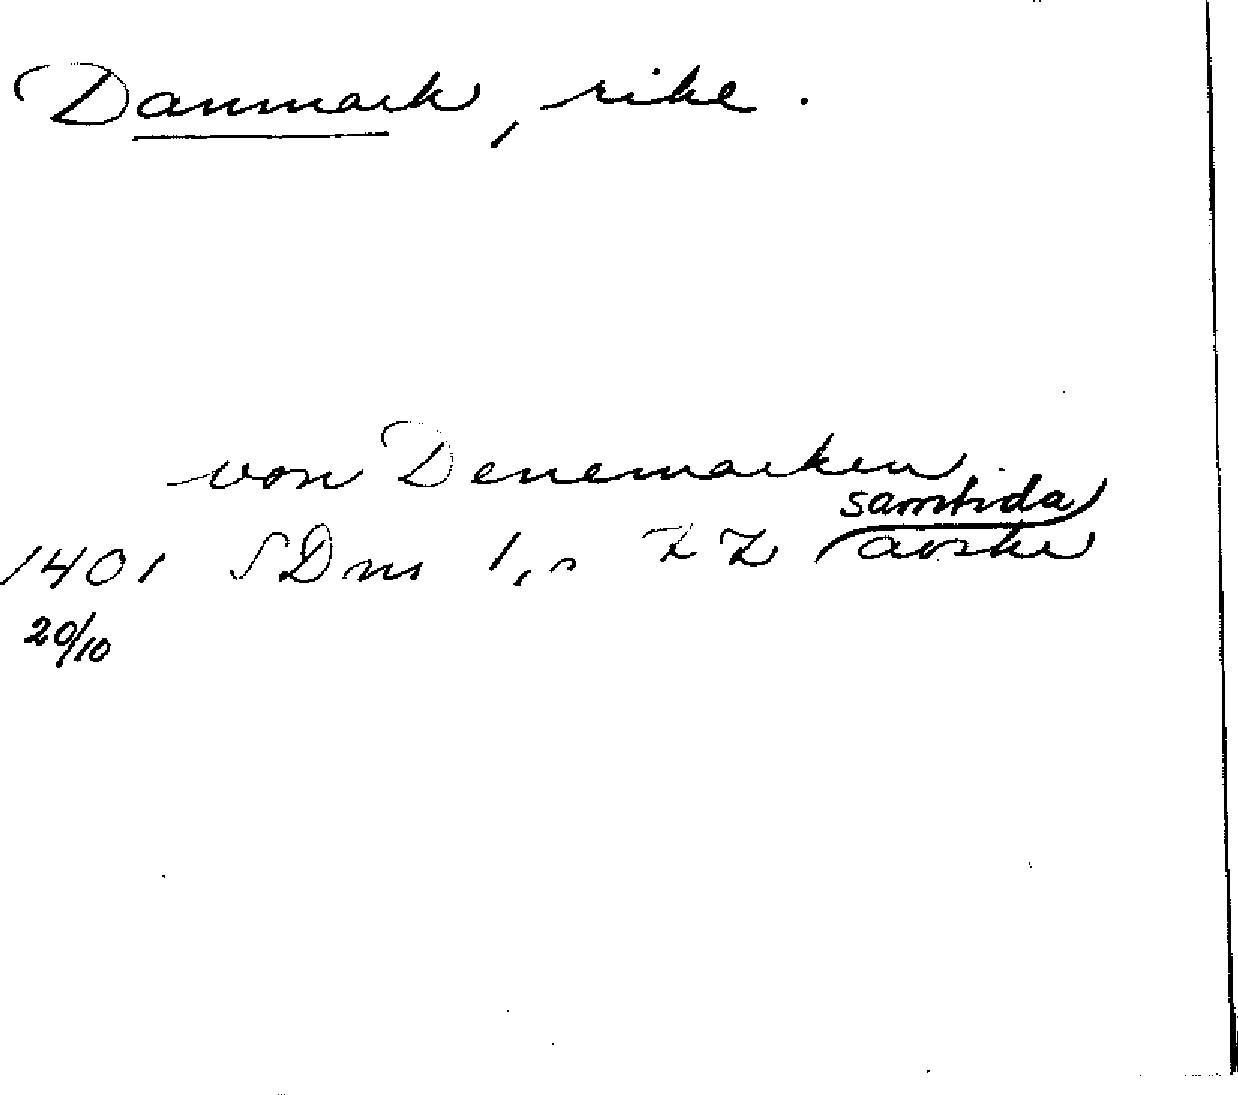 Danmark, rike.
von Denemarken
samtida
1401 SDns 1, s 22 avskr
20/10